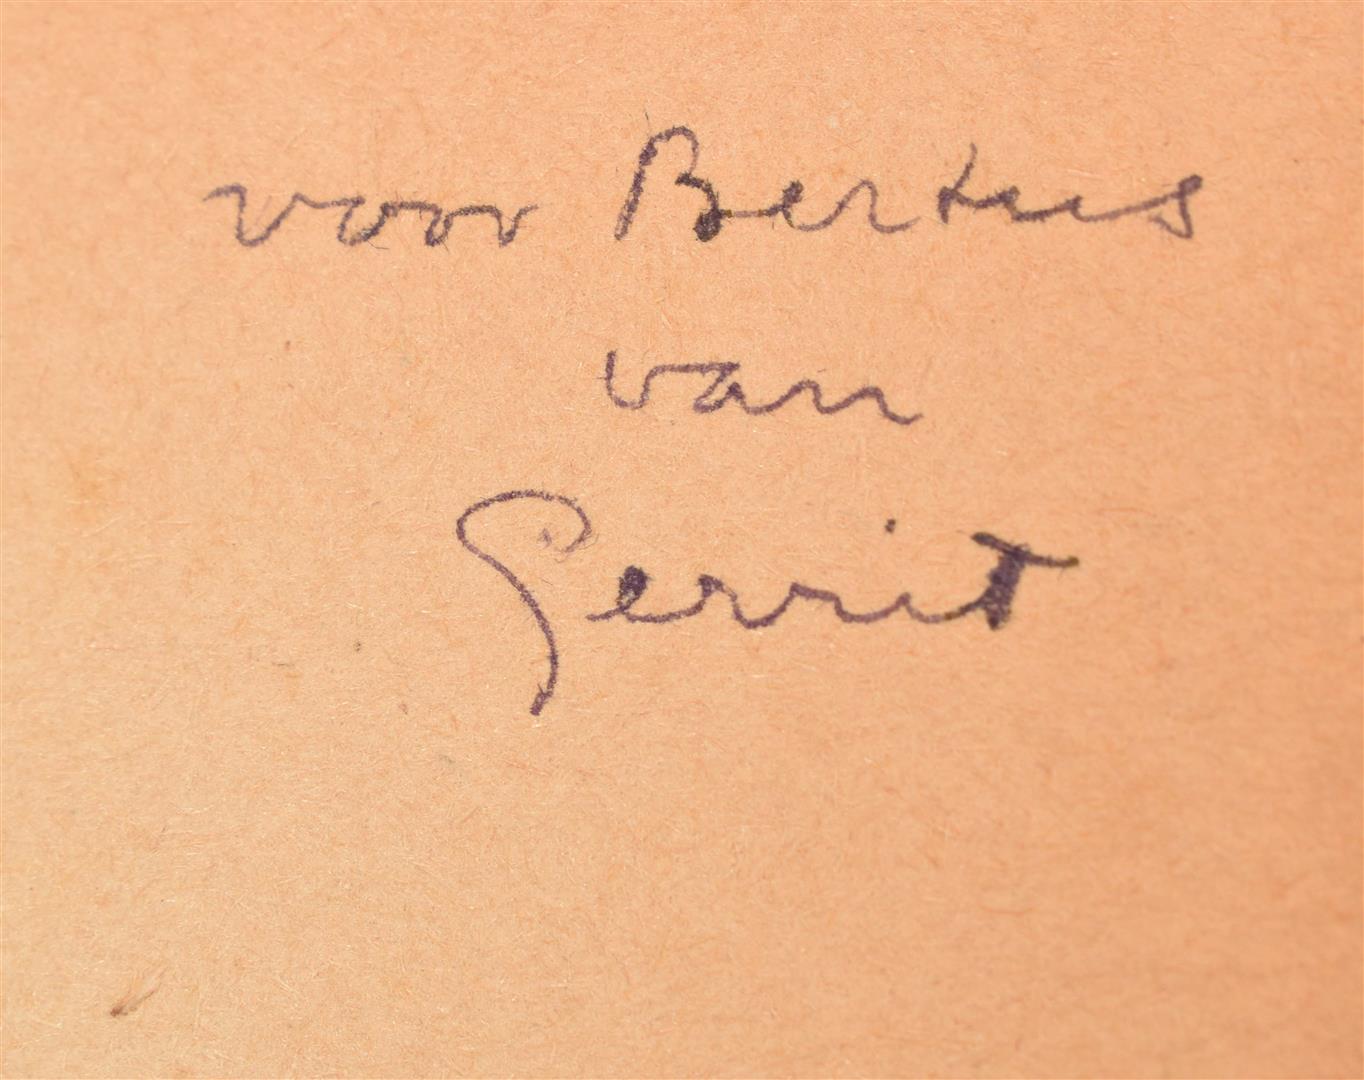 voor Bertus
van
Gerrit